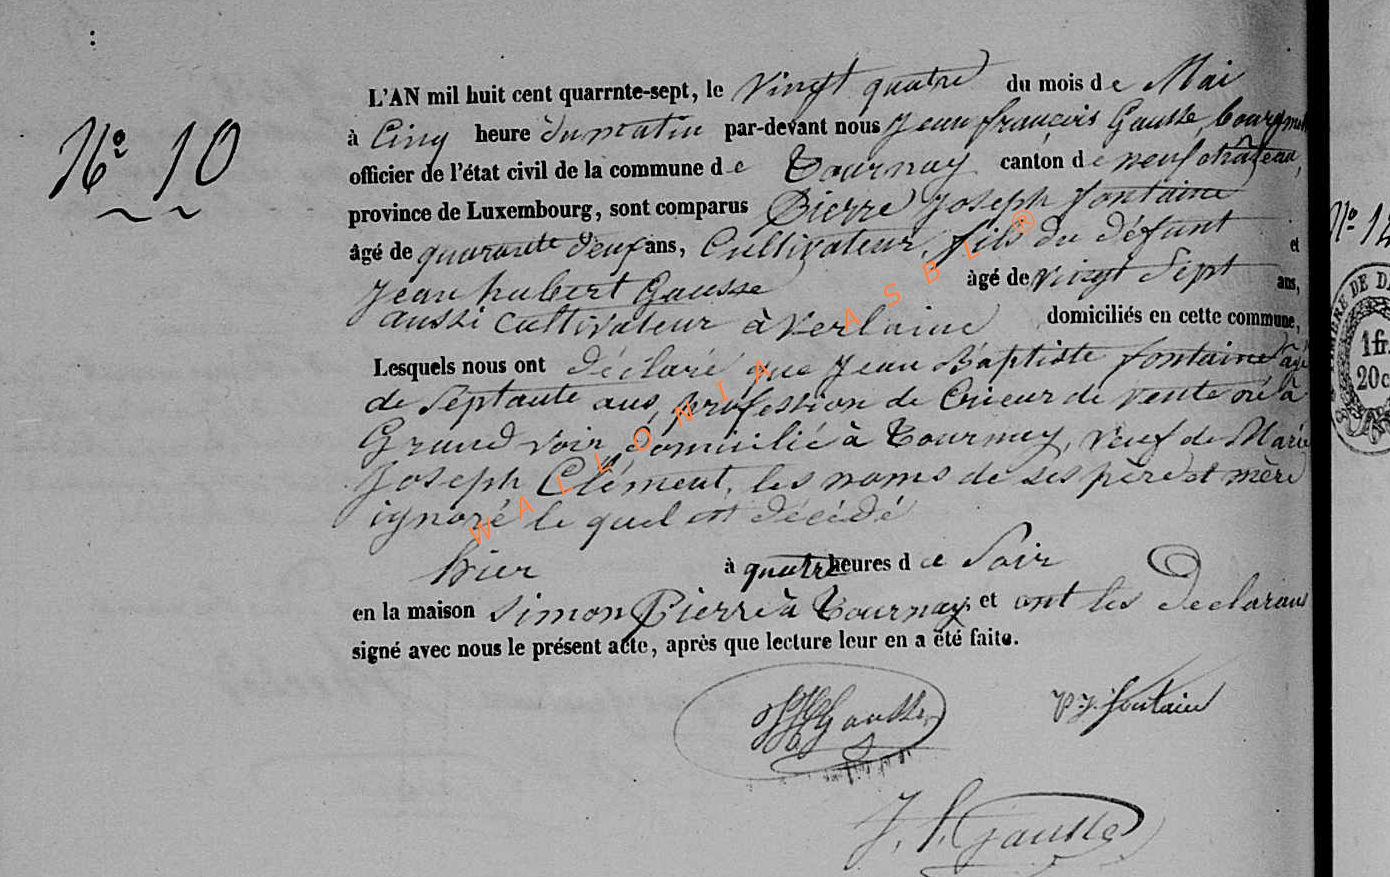 Nº 10
L'AN mil huit cent quarrnte-sept, le Vingt quatre du mois de Mai
à Cinq heure du matin par-devant nous Jean françois Gausse, bourgmest
officier de l'état civil de la commune de Tournay canton de neufchâteau,
province de Luxembourg, sont comparus Pierre Joseph fontaine
âgé de quarante deux ans, Cultivateur, fils du défunt et
Jean hubert Gausse âgé de vingt Sept ans,
aussi Cultivateur à Verlaine domiciliés en cette commune,
Lesquels nous ont déclaré que Jean Baptiste fontaine âgé
de Septante ans, profession de Crieur de vente né à
Grand voir, domicilié à Tournay, Veuf de Marie
Joseph Clément, les noms de ses père et mère
ignoré le quel est décédé
hier à quatre heures d du Soir
en la maison Simon Pierre à Tournay, et ont les declarans
signé avec nous le présent acte, après que lecture leur en a été faite.
JH Gausse P J fontaine
J. f. Gausse
WALLONIA ASBL ®
Nº 1
1 fr.
20 c